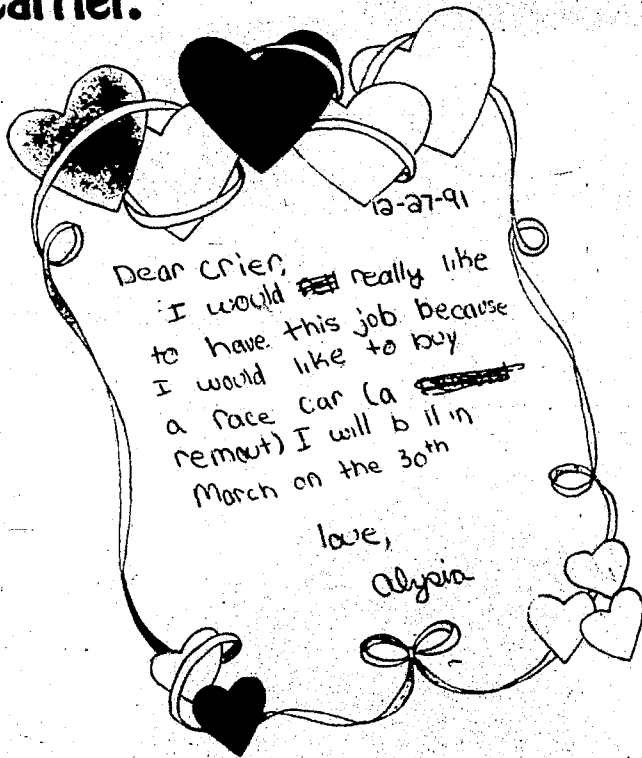 carrier.
12-27-91
Dear Crier,
I would really like
to have this job because
I would like to buy
a race car (a
remout) I will b 11 in
March on the 30th
love,
Alysia